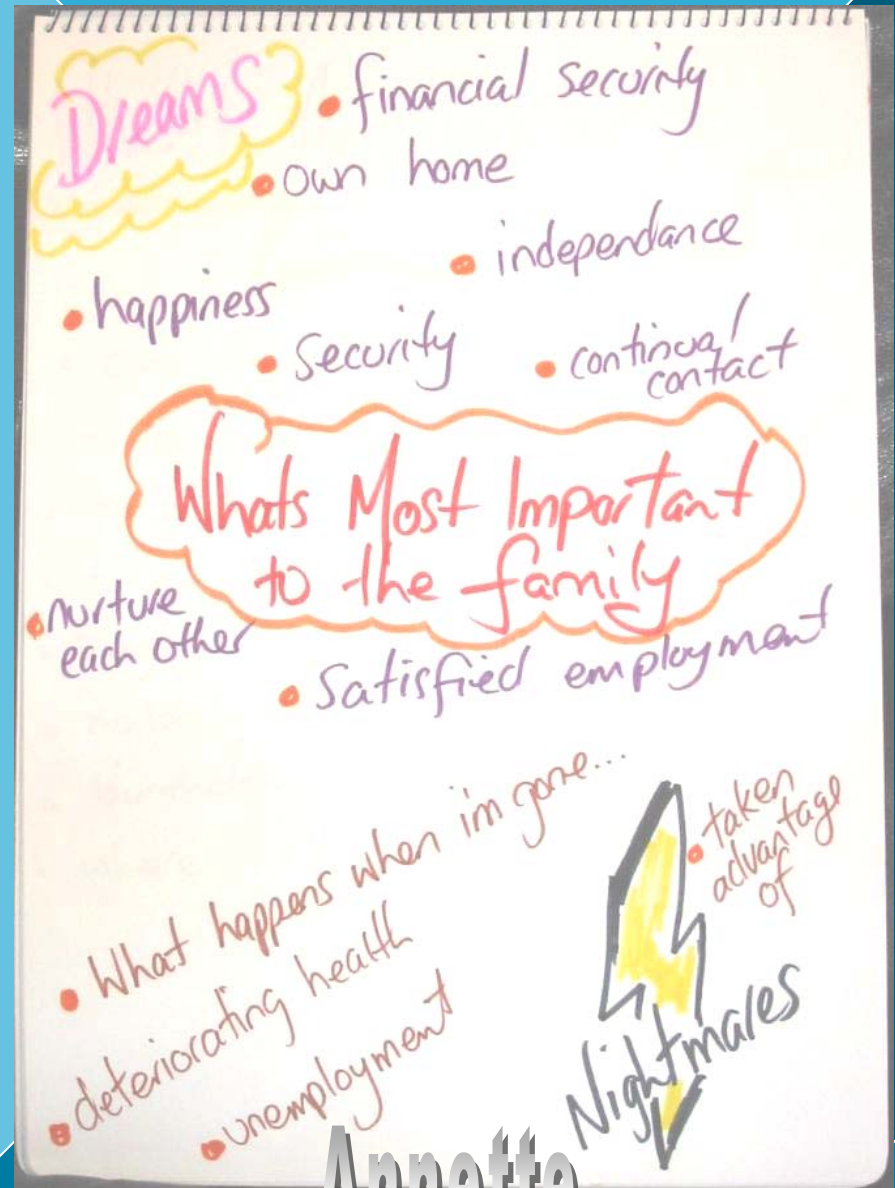 Dreams
• financial security
• own home
• independance
• happiness
• Security
• continual
contact
Whats Most Important
to the family
• nurture
each other
• Satisfied employment
• What happens when im gone...
• taken
advantage
of
• deteriorating health
• unemployment
Nightmares
Annette